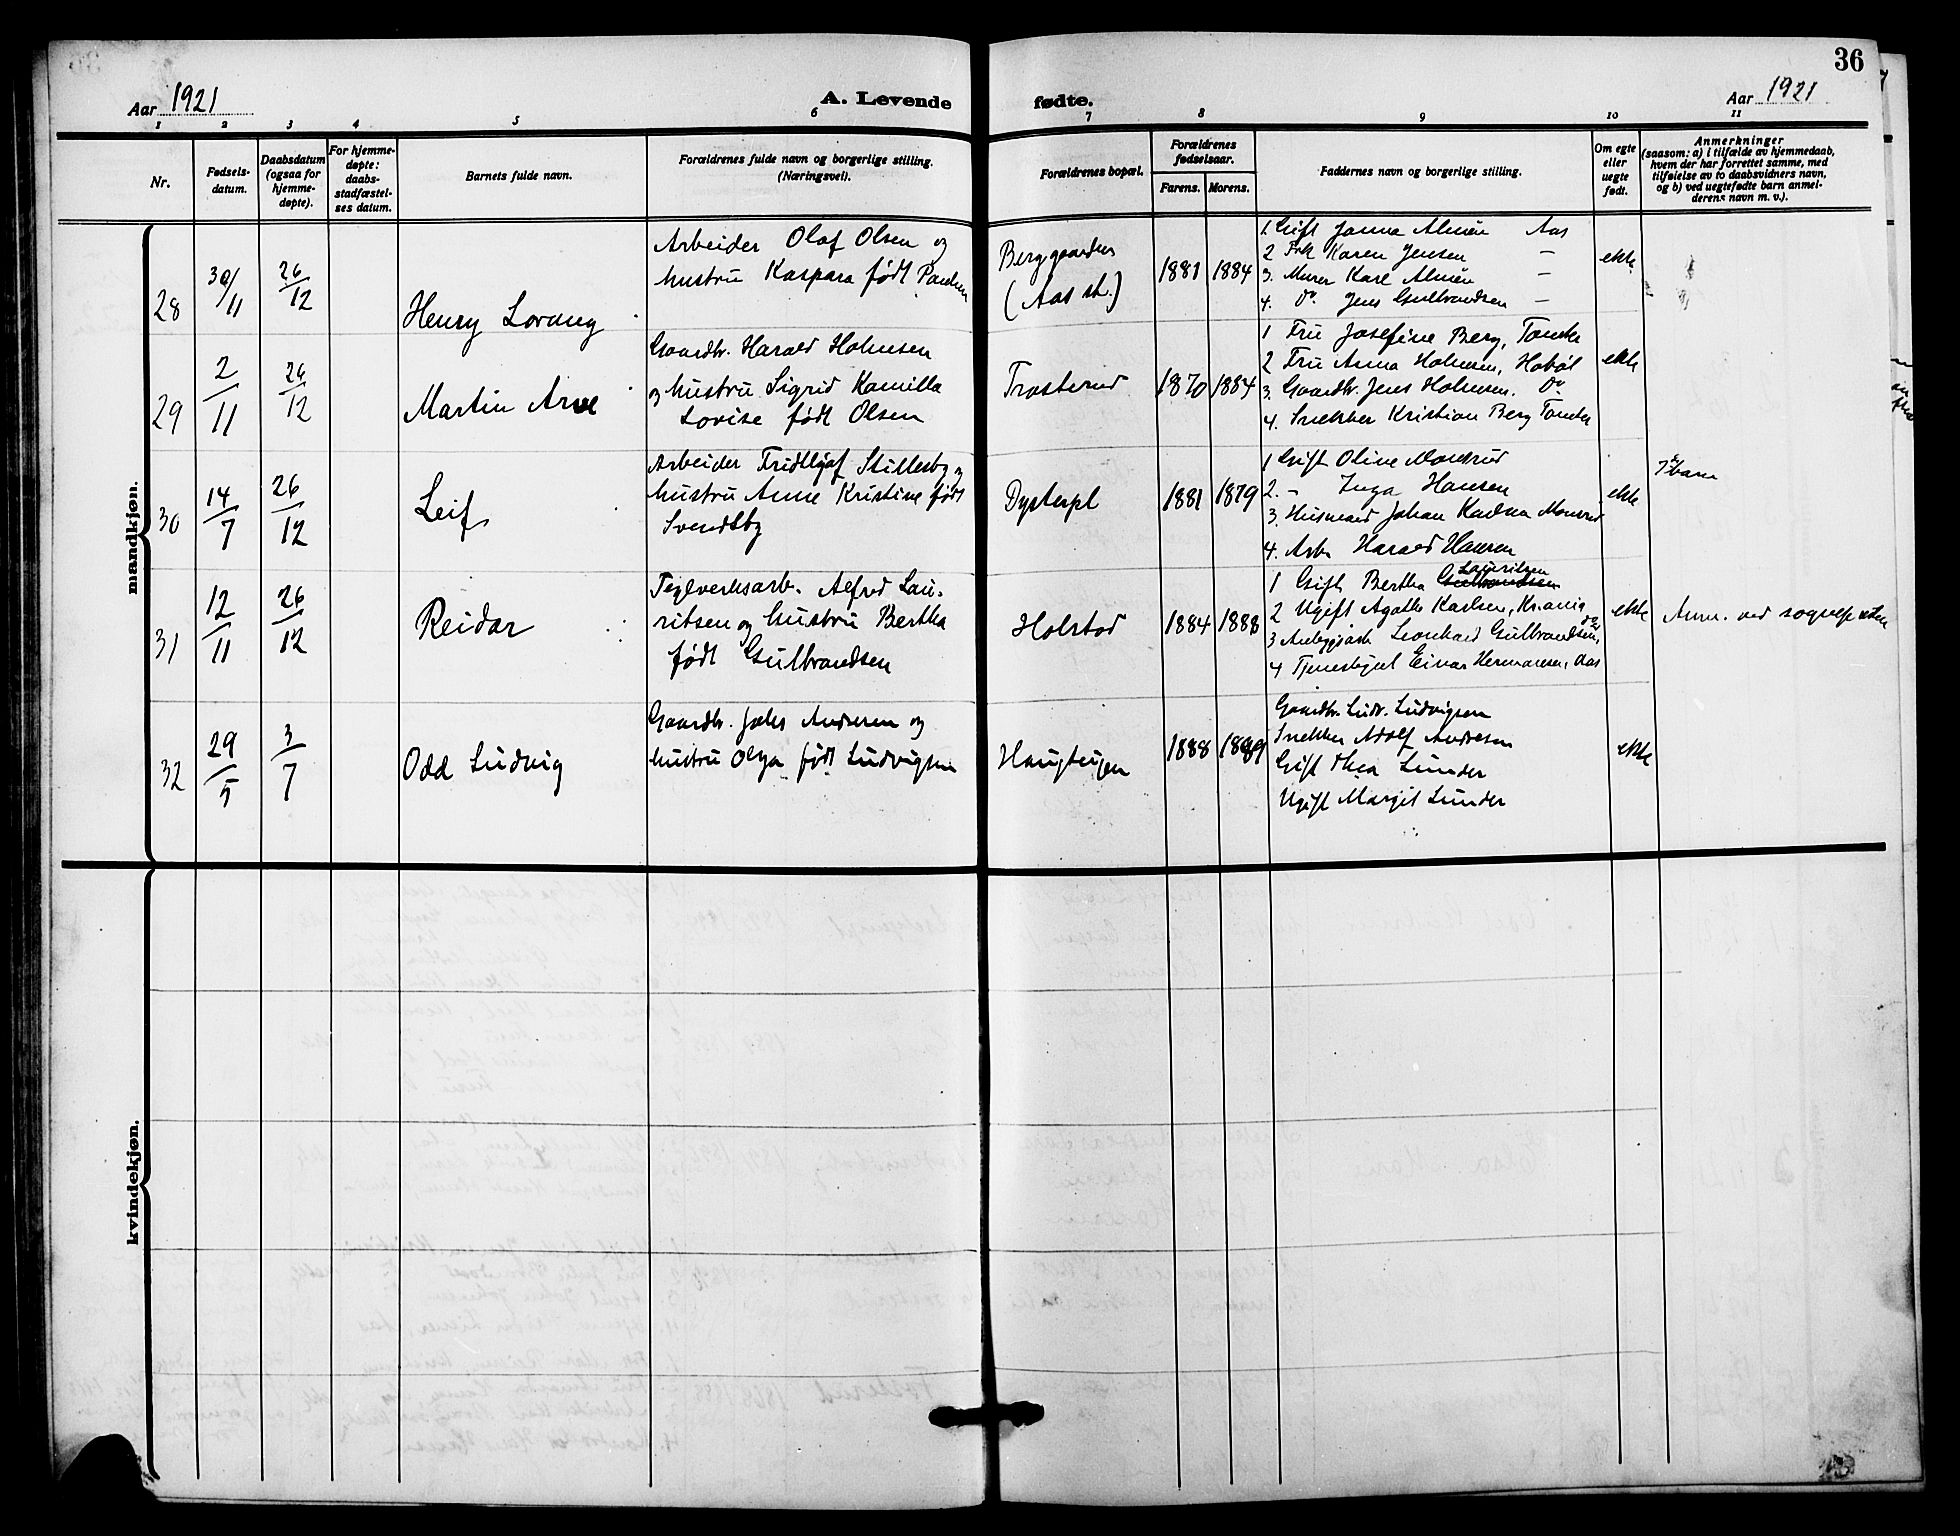 36
Aar 1921
A. Levende fødte.
Aar 1921
1 2 3 4 5 6 7 8 9 10 11
Nr.
Fødsels-
datum.
Daabsdatum
(ogsaa for
hjemme-
døpte).
For hjemme-
døpte:
daabs-
stadfæstel-
ses datum.
Barnets fulde navn.
Forældrenes fulde navn og borgerlige stilling.
(Næringsvei).
Forældrenes bopæl.
Forældrenes
fødselsaar.
Farens. Morens.
Faddernes navn og borgerlige stilling.
Om egte
eller
uegte
født.
Anmerkninger
(saasom: a) i tilfælde av hjemmedaab,
hvem der har forrettet samme, med
tilføielse av to daabsvidners navn,
og b) ved uegtefødte barn anmel-
derens navn m. v.).
mandkjøn.
28
30/11
26/12
Henry Lorang
Arbeider Olaf Olsen og
hustru Kaspara født Paulsen
Berggaarden
(Aas st.)
1881 1884
1. Gift Janna Almén Aas
2 Frk Karen Jensen —
3. Murer Karl Almén —
4. Do. Jens Gulbrandsen —
ekte
29
2/11
26/12
Martin Arve
Gaardbr. Harald Holmsen
og hustru Sigrid Kamilla
Lovise født Olsen
Trosterud
1870 1884
1 Fru Josefine Berg, Tomter
2 Fru Anna Holmen, Hobøl
3. Gaardbr. Jens Holmen. Do
4. Snekker Kristian Berg Tomter
ekte
30
14/7
26/12
Leif
Arbeider Fridtjof Stillesby og
hustru Anne Kristine født
Svendsby
Dysterpl
1881 1879
1 Gift Oline Monsrud
2. — Inga Hansen
3. Husmand Johan
4. Arb. Harald Hansen
ekte
7de barn
31
12/11
26/12
Reidar
Teglverksarb. Alfred Lau-
ritsen og hustru Bertha
født Gulbrandsen
Holstad
1884 1888
1 Gift Bertha Gulbrandsen Lauritsen
2 Ugift Agathe Karlsen, Krania
3 Anleggsarb Leonhard Gulbrandsen, do
4 Tjenestegut Einar Hermansen, Aas
ekte
Anm. ved sognepresten
32
29/5
3/7
Odd Ludvig
Gaardbr. Johs Andresen og
hustru Olga født Ludvigsen
Haugtugen
1888 1889
Gaardbr. Ludv. Ludvigsen
Snekker Adolf Andresen
Gift Thea Lunder
Ugift Margit Lunder
ekte
kvindekjøn.